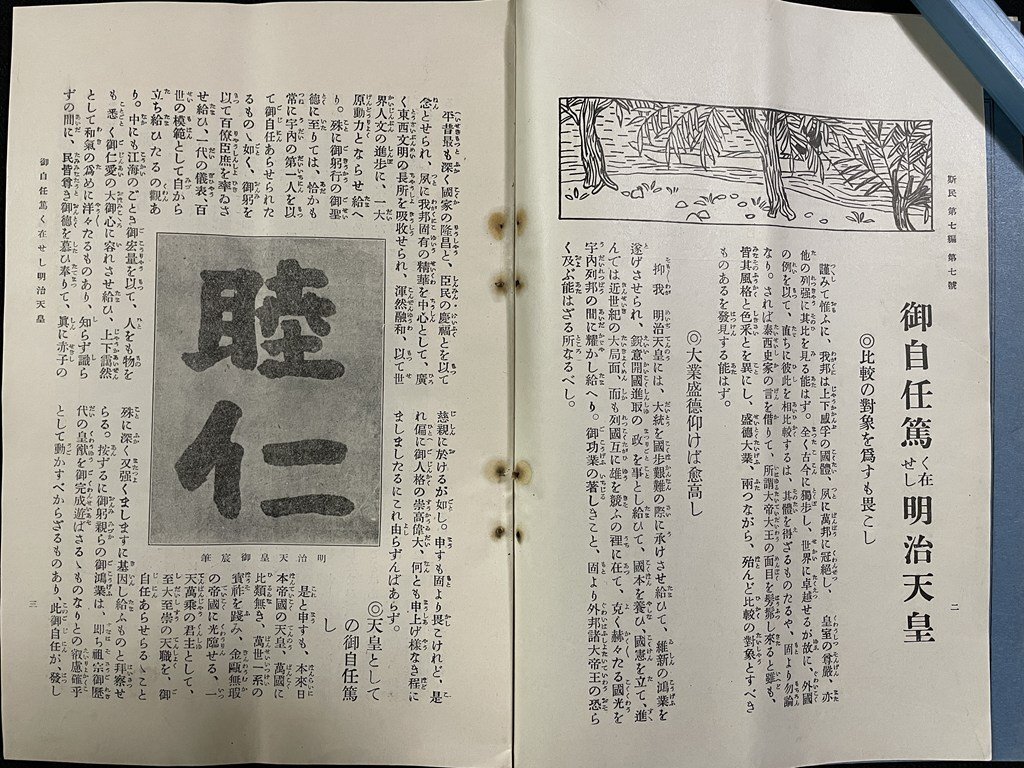 斯民 第七編 第七號
二
御自任篤く在せし明治天皇
◎比較の對象を爲すも畏こし
謹みて惟ふに、我邦は上下咸孚の國體、夙に萬邦に冠絶し、皇室の尊嚴、亦
他の列强に其比を見る能はず。全く古今に獨步し、世界に卓越せるが故に、外國
の例を以て、直ちに彼此を相比較するは、其體を得ざるものたるや、固より勿論
なり。されば泰西史家の言を借りて、所謂大帝大王の面目を髣髴し來ると雖も、
皆其風格と色釆とを異にし、盛德大業、兩つながら、殆んど比較の對象とすべき
ものあるを發見する能はず。
◎大業盛德仰けば愈高し
抑我明治天皇には、大統を國步艱難の際に承けさせ給ひて、維新の鴻業を
遂げさせられ、銳意開國進取の政を事とし給ひて、國本を養ひ、國憲を立て、進
んでは近世紀の大局面、而も列國互に雄を競ふの裡に在て、克く赫々たる國光を
宇內列邦の間に耀かし給へり。御功業の著しきこと、固より外邦諸大帝王の恐ら
く及ぶ能はざる所なるべし。
平昔最も深く國家の隆昌と、臣民の慶福とを以て
念とせられ、夙に我邦固有の精華を中心として、廣
く東西文明の長所を吸收せられ、渾然融和、以て世
界人文の進步に、一大
原動力とならせ給へ
り。殊に御躬行の御聖
德に至りては、恰かも
常に宇內の第一人を以
て御自任あらせられた
るものゝ如く、御躬を
以て百僚臣庶を率ゐさ
せ給ひ、一代の儀表、百
世の模範として自から
立ち給ひたるの觀あ
り。中にも江海のごとき御宏量を以て、人をも物を
も、悉く御仁愛の大御心に容れさせ給ひ、上下靄然
として和氣の爲めに洋々たるものあり、知らず識ら
ずの間に、民皆尊き御德を慕ひ奉りて、眞に赤子の
睦仁
明治天皇御宸筆
慈親に於けるが如し。申すも固より畏こけれど、是
れ偏に御人格の崇高偉大、何とも申上げ樣なき程に
ましましたるにこれ由らずんばあらず。
◎天皇として
の御自任篤
し
是と申すも、本來日
本帝國の天皇、萬國に
比類無き、萬世一系の
寶祚を踐み、金甌無瑕
の帝國に光臨せる、一
天萬乘の君主として、
至大至崇の天職を、御
自任あらせらるゝこと
殊に深く又强くましますに基因し給ふものと拜察せ
らる。按ずるに御躬親らの御鴻業は、即ち祖宗御歷
代の皇猷を御完成遊ばさるゝものなりとの叡慮確乎
として動かすべからざるものあり、此御自任が、發し
御自任篤く在せし明治天皇
三